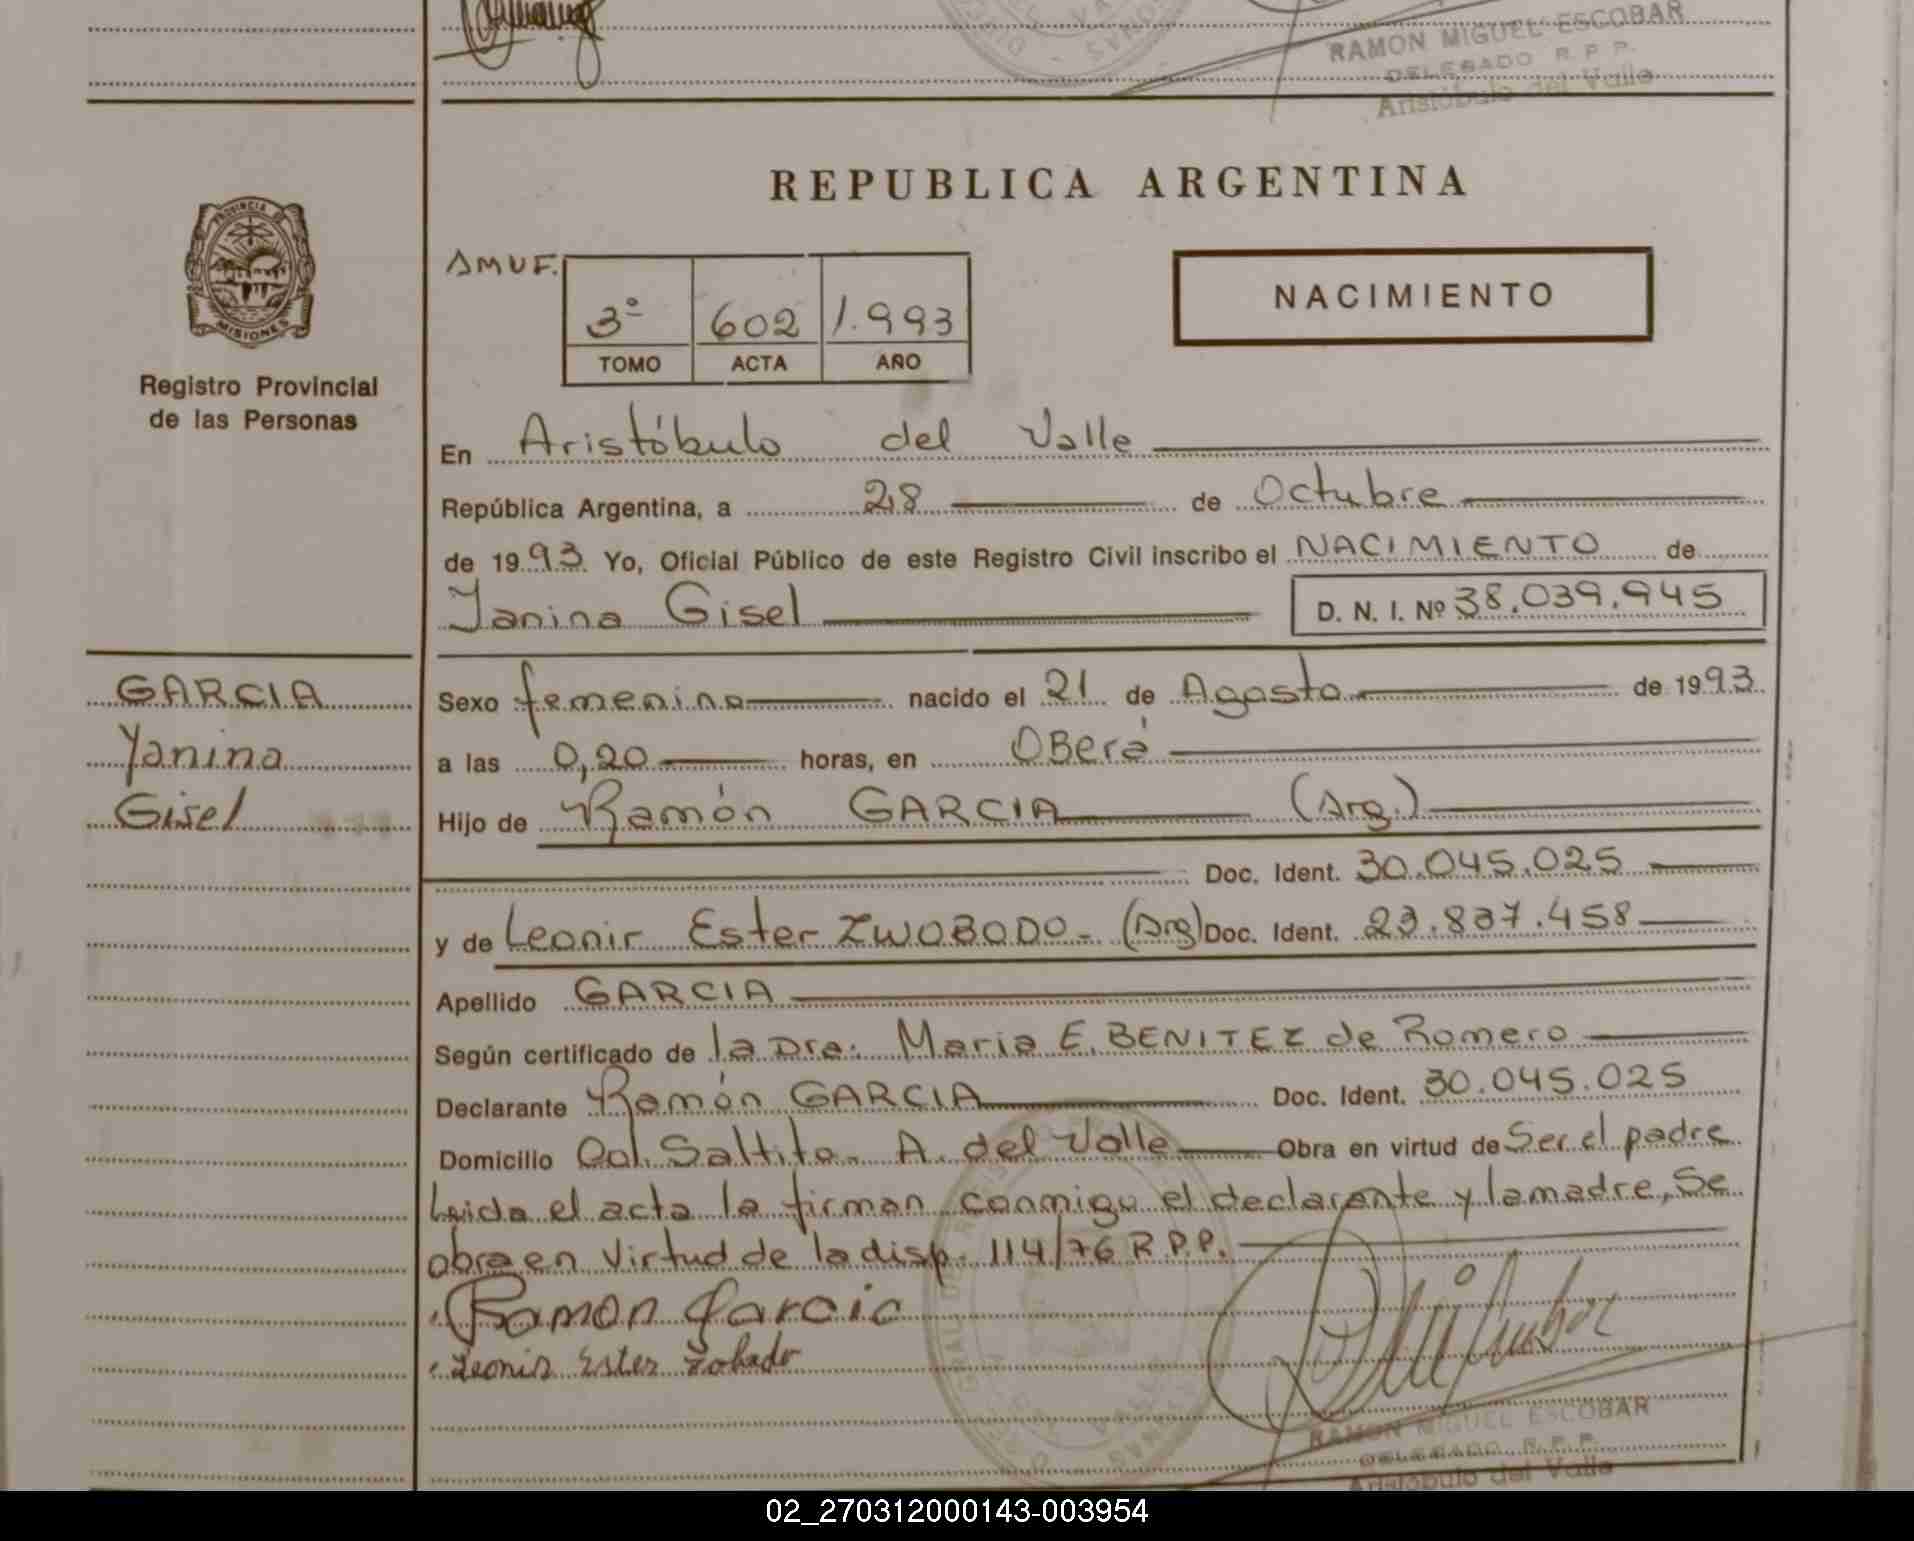 RAMON MIGUEL ESCOBAR
DELEGADO R. P. P.
Aristóbulo del Valle
REPUBLICA ARGENTINA
PROVINCIA DE
MISIONES
Registro Provincial
de las Personas
AMUF.
3º 602 1.993
TOMO ACTA AÑO
NACIMIENTO
En Aristóbulo del Valle
República Argentina, a 28 de Octubre
de 1993 Yo, Oficial Público de este Registro Civil inscribo el NACIMIENTO de
Yanina Gisel D. N. I. Nº 38.039.945
GARCIA
Yanina
Gisel
Sexo femenino nacido el 21 de Agosto de 1993
a las 0,20 horas, en OBerá
Hijo de Ramón GARCIA (Arg.)
Doc. Ident. 30.045.025
y de Leonir Ester ZWOBODO- (Arg) Doc. Ident. 23.837.458
Apellido GARCIA
Según certificado de la Dra. Maria E. BENITEZ de Romero
Declarante Ramón GARCIA Doc. Ident. 30.045.025
Domicilio Col. Saltito. A. del Valle Obra en virtud de Ser el padre
Leida el acta la firman conmigo el declarante y la madre, Se
obra en virtud de la disp. 114/76 R.P.P.
Ramon Garcia
Leonir Ester Zobado
RAMON MIGUEL ESCOBAR
DELEGADO R.P.P.
Aristóbulo del Valle
02_270312000143-003954